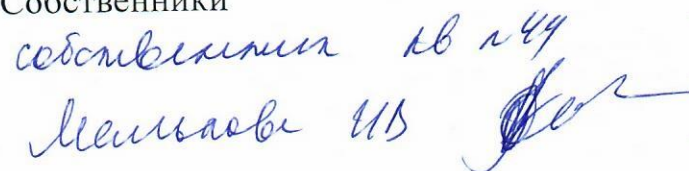 Собственники
собственник кв №44
Мелькова ИВ